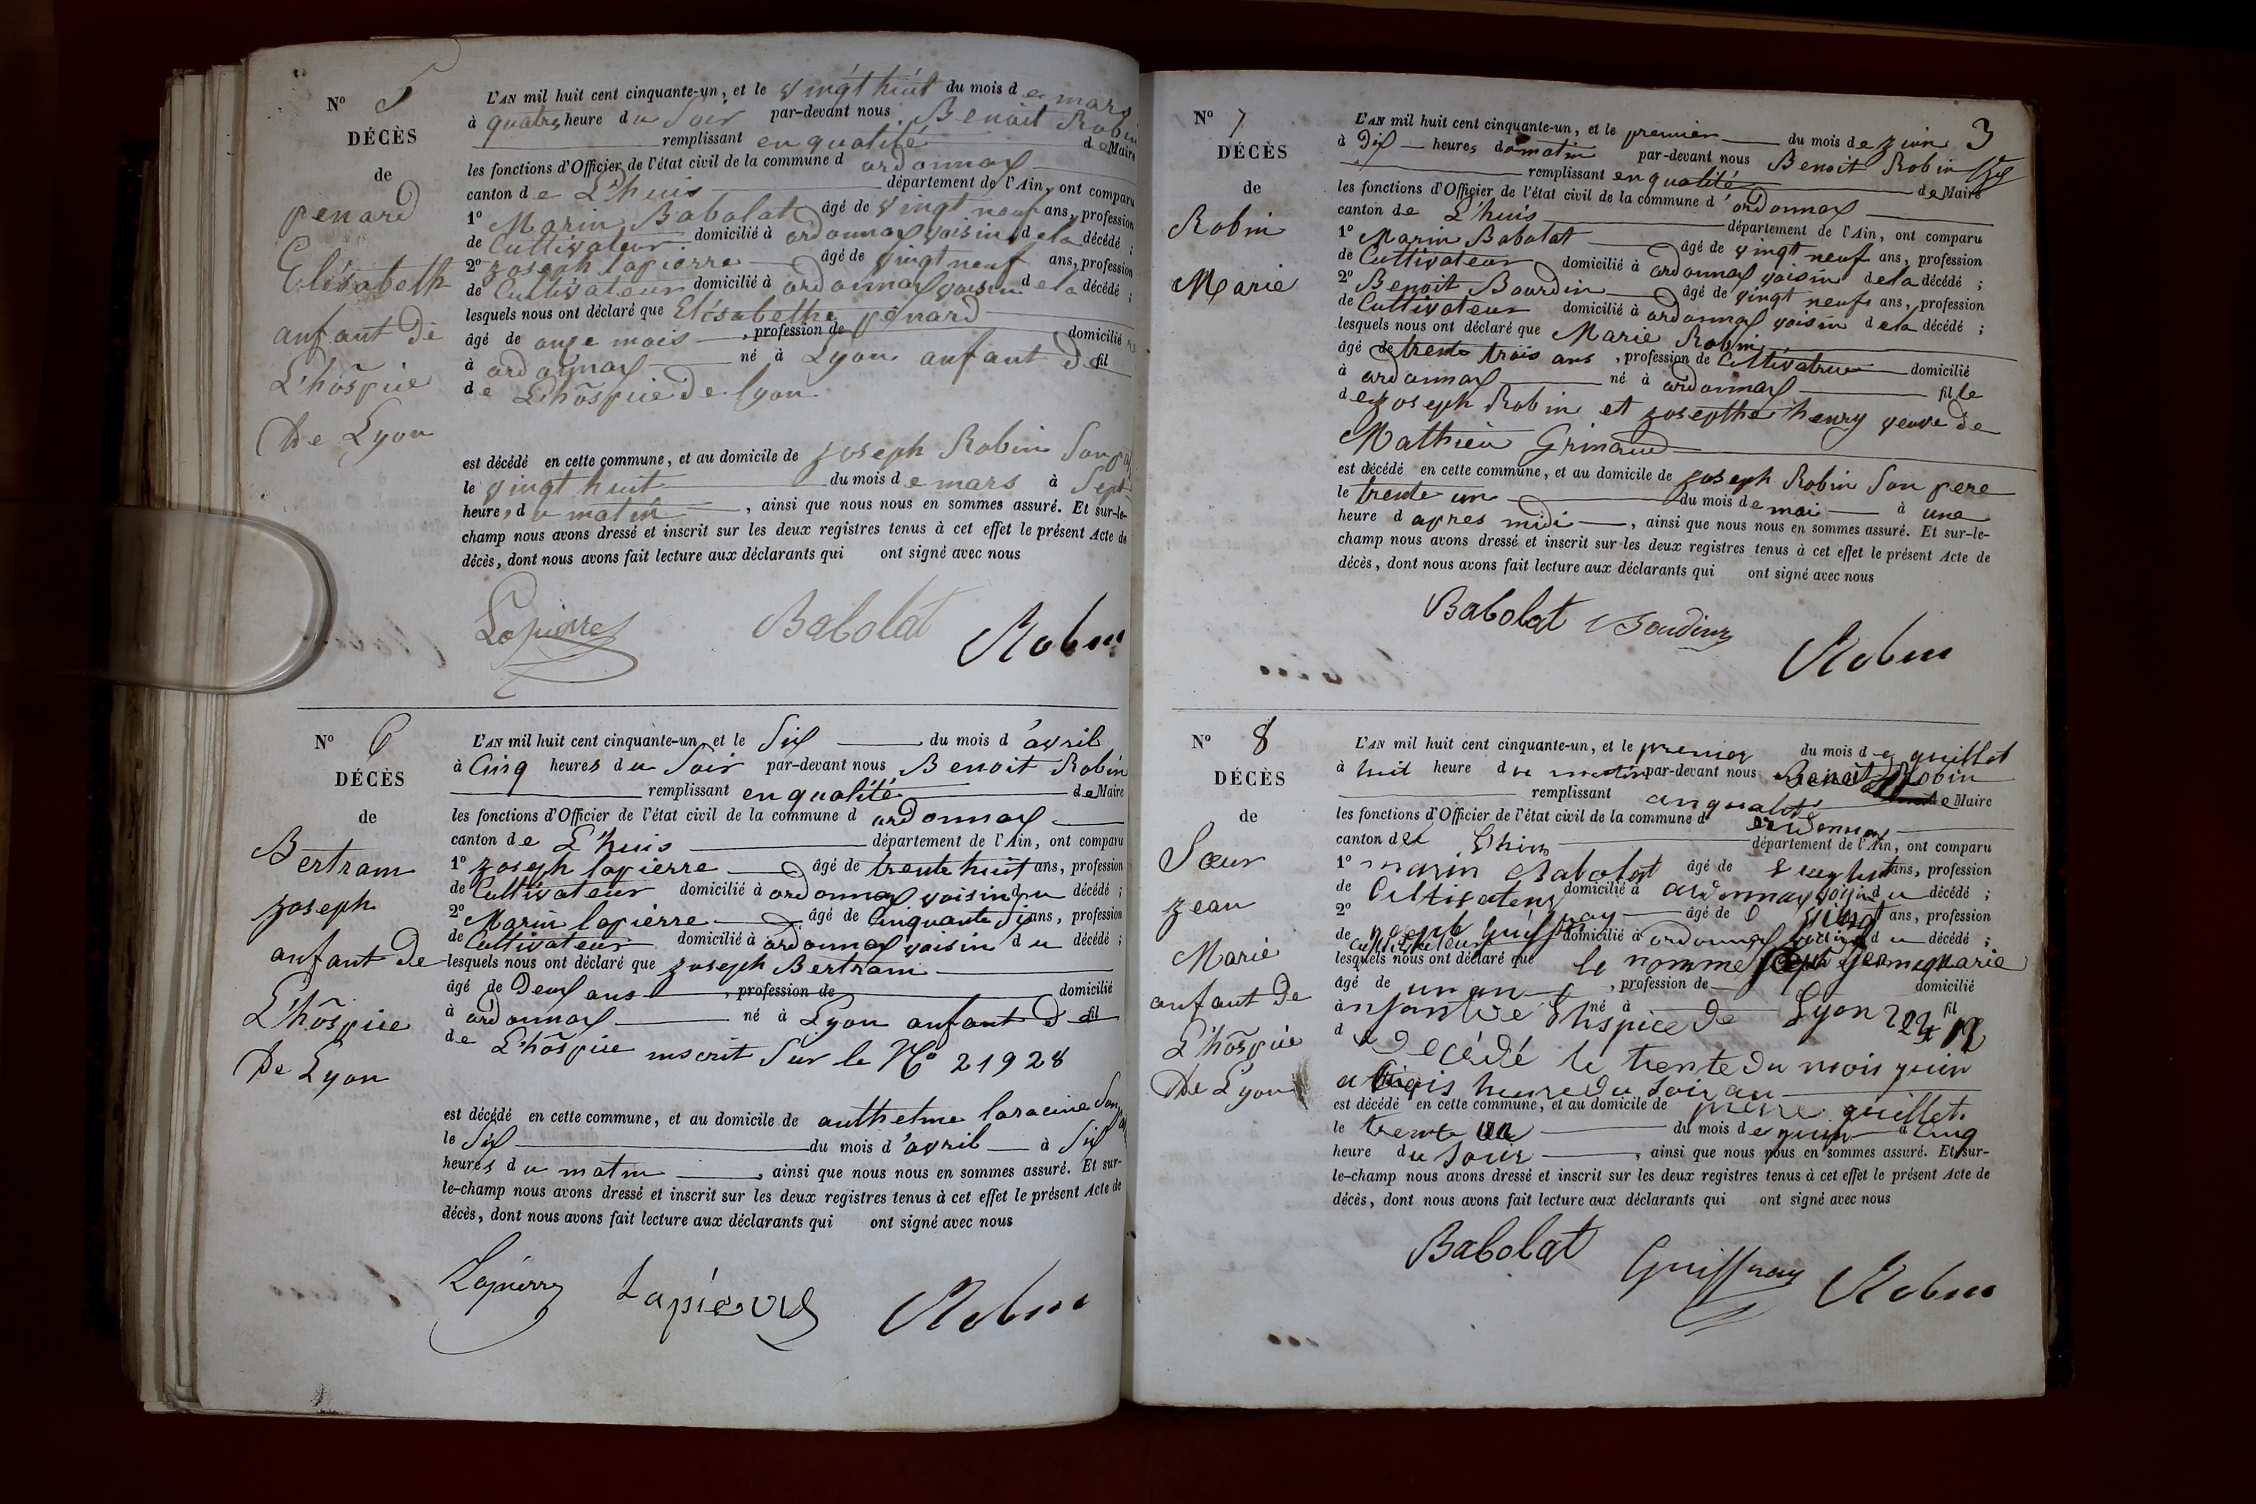 Nº 5
DÉCÈS
de
penard
Elisabeth
anfant de
L'hôspice
De Lyon
L'AN mil huit cent cinquante-un, et le vingt huit du mois de mars
à quatre heure du Soir par-devant nous Benoit Robin
remplissant en qualité de Maire
les fonctions d'Officier de l'état civil de la commune d ordonnax
canton de L'huis département de l'Ain, ont comparu
1º Marin Babolat âgé de vingt neuf ans, profession
de Cultivateur domicilié à ordonnax voisin de la décédé ;
2º Joseph lapierre âgé de vingt neuf ans, profession
de Cultivateur domicilié à ordonnax voisin de la décédé ;
lesquels nous ont déclaré que Elisabethe penard
âgé de onze mois , profession de domicilié
à ordonnax né à Lyon anfant de fil
de L'hôspice de lyon
est décédé en cette commune, et au domicile de Joseph Robin Son
le vingt huit du mois de mars à Sept
heures du matin , ainsi que nous nous en sommes assuré. Et sur-le-
champ nous avons dressé et inscrit sur les deux registres tenus à cet effet le présent Acte de
décès, dont nous avons fait lecture aux déclarants qui ont signé avec nous
Lapierre Babolat Robin
Nº 6
DÉCÈS
de
Bertram
Joseph
anfant de
L'hôspice
De Lyon
L'AN mil huit cent cinquante-un, et le Six du mois d'avril
à Cinq heures du Soir par-devant nous Benoit Robin
remplissant en qualité de Maire
les fonctions d'Officier de l'état civil de la commune d ordonnax
canton de L'huis département de l'Ain, ont comparu
1º Joseph lapierre âgé de trente huit ans, profession
de Cultivateur domicilié à ordonnax voisin du décédé ;
2º Marin lapierre âgé de Cinquante Six ans, profession
de Cultivateur domicilié à ordonnax voisin du décédé ;
lesquels nous ont déclaré que Joseph Bertram
âgé de Deux ans , profession de domicilié
à ordonnax né à Lyon anfant d fil
de L'hôspice inscrit Sur le Nº 21928
est décédé en cette commune, et au domicile de anthelme laracine Son
le Six du mois d'avril à Six
heures du matin , ainsi que nous nous en sommes assuré. Et sur-
le-champ nous avons dressé et inscrit sur les deux registres tenus à cet effet le présent Acte de
décès, dont nous avons fait lecture aux déclarants qui ont signé avec nous
Lapierre Lapierre Robin
3
Nº 7
DÉCÈS
de
Robin
Marie
L'AN mil huit cent cinquante-un, et le premier du mois de juin
à Dix heures du matin par-devant nous Benoit Robin
remplissant en qualité de Maire
les fonctions d'Officier de l'état civil de la commune d'ordonnax
canton de L'huis département de l'Ain, ont comparu
1º Marin Babolat âgé de vingt neuf ans, profession
de Cultivateur domicilié à ordonnax voisin de la décédé ;
2º Benoit Bourdin âgé de vingt neuf ans, profession
de Cultivateur domicilié à ordonnax voisin de la décédé ;
lesquels nous ont déclaré que Marie Robin
âgé de trente trois ans , profession de Cultivatrice domicilié
à ordonnax né à ordonnax fille
de Joseph Robin et Josepthe henry veuve de
Mathieu Grimaud
est décédé en cette commune, et au domicile de Joseph Robin Son pere
le trente un du mois de mai à une
heure d apres midi , ainsi que nous nous en sommes assuré. Et sur-le-
champ nous avons dressé et inscrit sur les deux registres tenus à cet effet le présent Acte de
décès, dont nous avons fait lecture aux déclarants qui ont signé avec nous
Babolat Bourdin Robin
Nº 8
DÉCÈS
de
Sœur
Jean
Marie
anfant de
L'hôspice
De Lyon
L'AN mil huit cent cinquante-un, et le premier du mois de juillet
à huit heure du matin par-devant nous Benoit Robin
remplissant anqualité de Maire
les fonctions d'Officier de l'état civil de la commune d ordonnax
canton de Lhuis département de l'Ain, ont comparu
1º marin Babolat âgé de ans, profession
de Cultivateur domicilié à ordonnax voisin du décédé ;
2º joseph Guiffray âgé de ans, profession
de Cultivateur domicilié à ordonnax voisin du décédé ;
lesquels nous ont déclaré que le nommé jean marie
âgé de un an , profession de domicilié
à né à Lyon fil
d décédé le trente du mois juin
a heure du soir au
est décédé en cette commune, et au domicile de pierre guillet
le trente du mois de juin à cinq
heure du soir , ainsi que nous nous en sommes assuré. Et sur-
le-champ nous avons dressé et inscrit sur les deux registres tenus à cet effet le présent Acte de
décès, dont nous avons fait lecture aux déclarants qui ont signé avec nous
Babolat Guiffray Robin